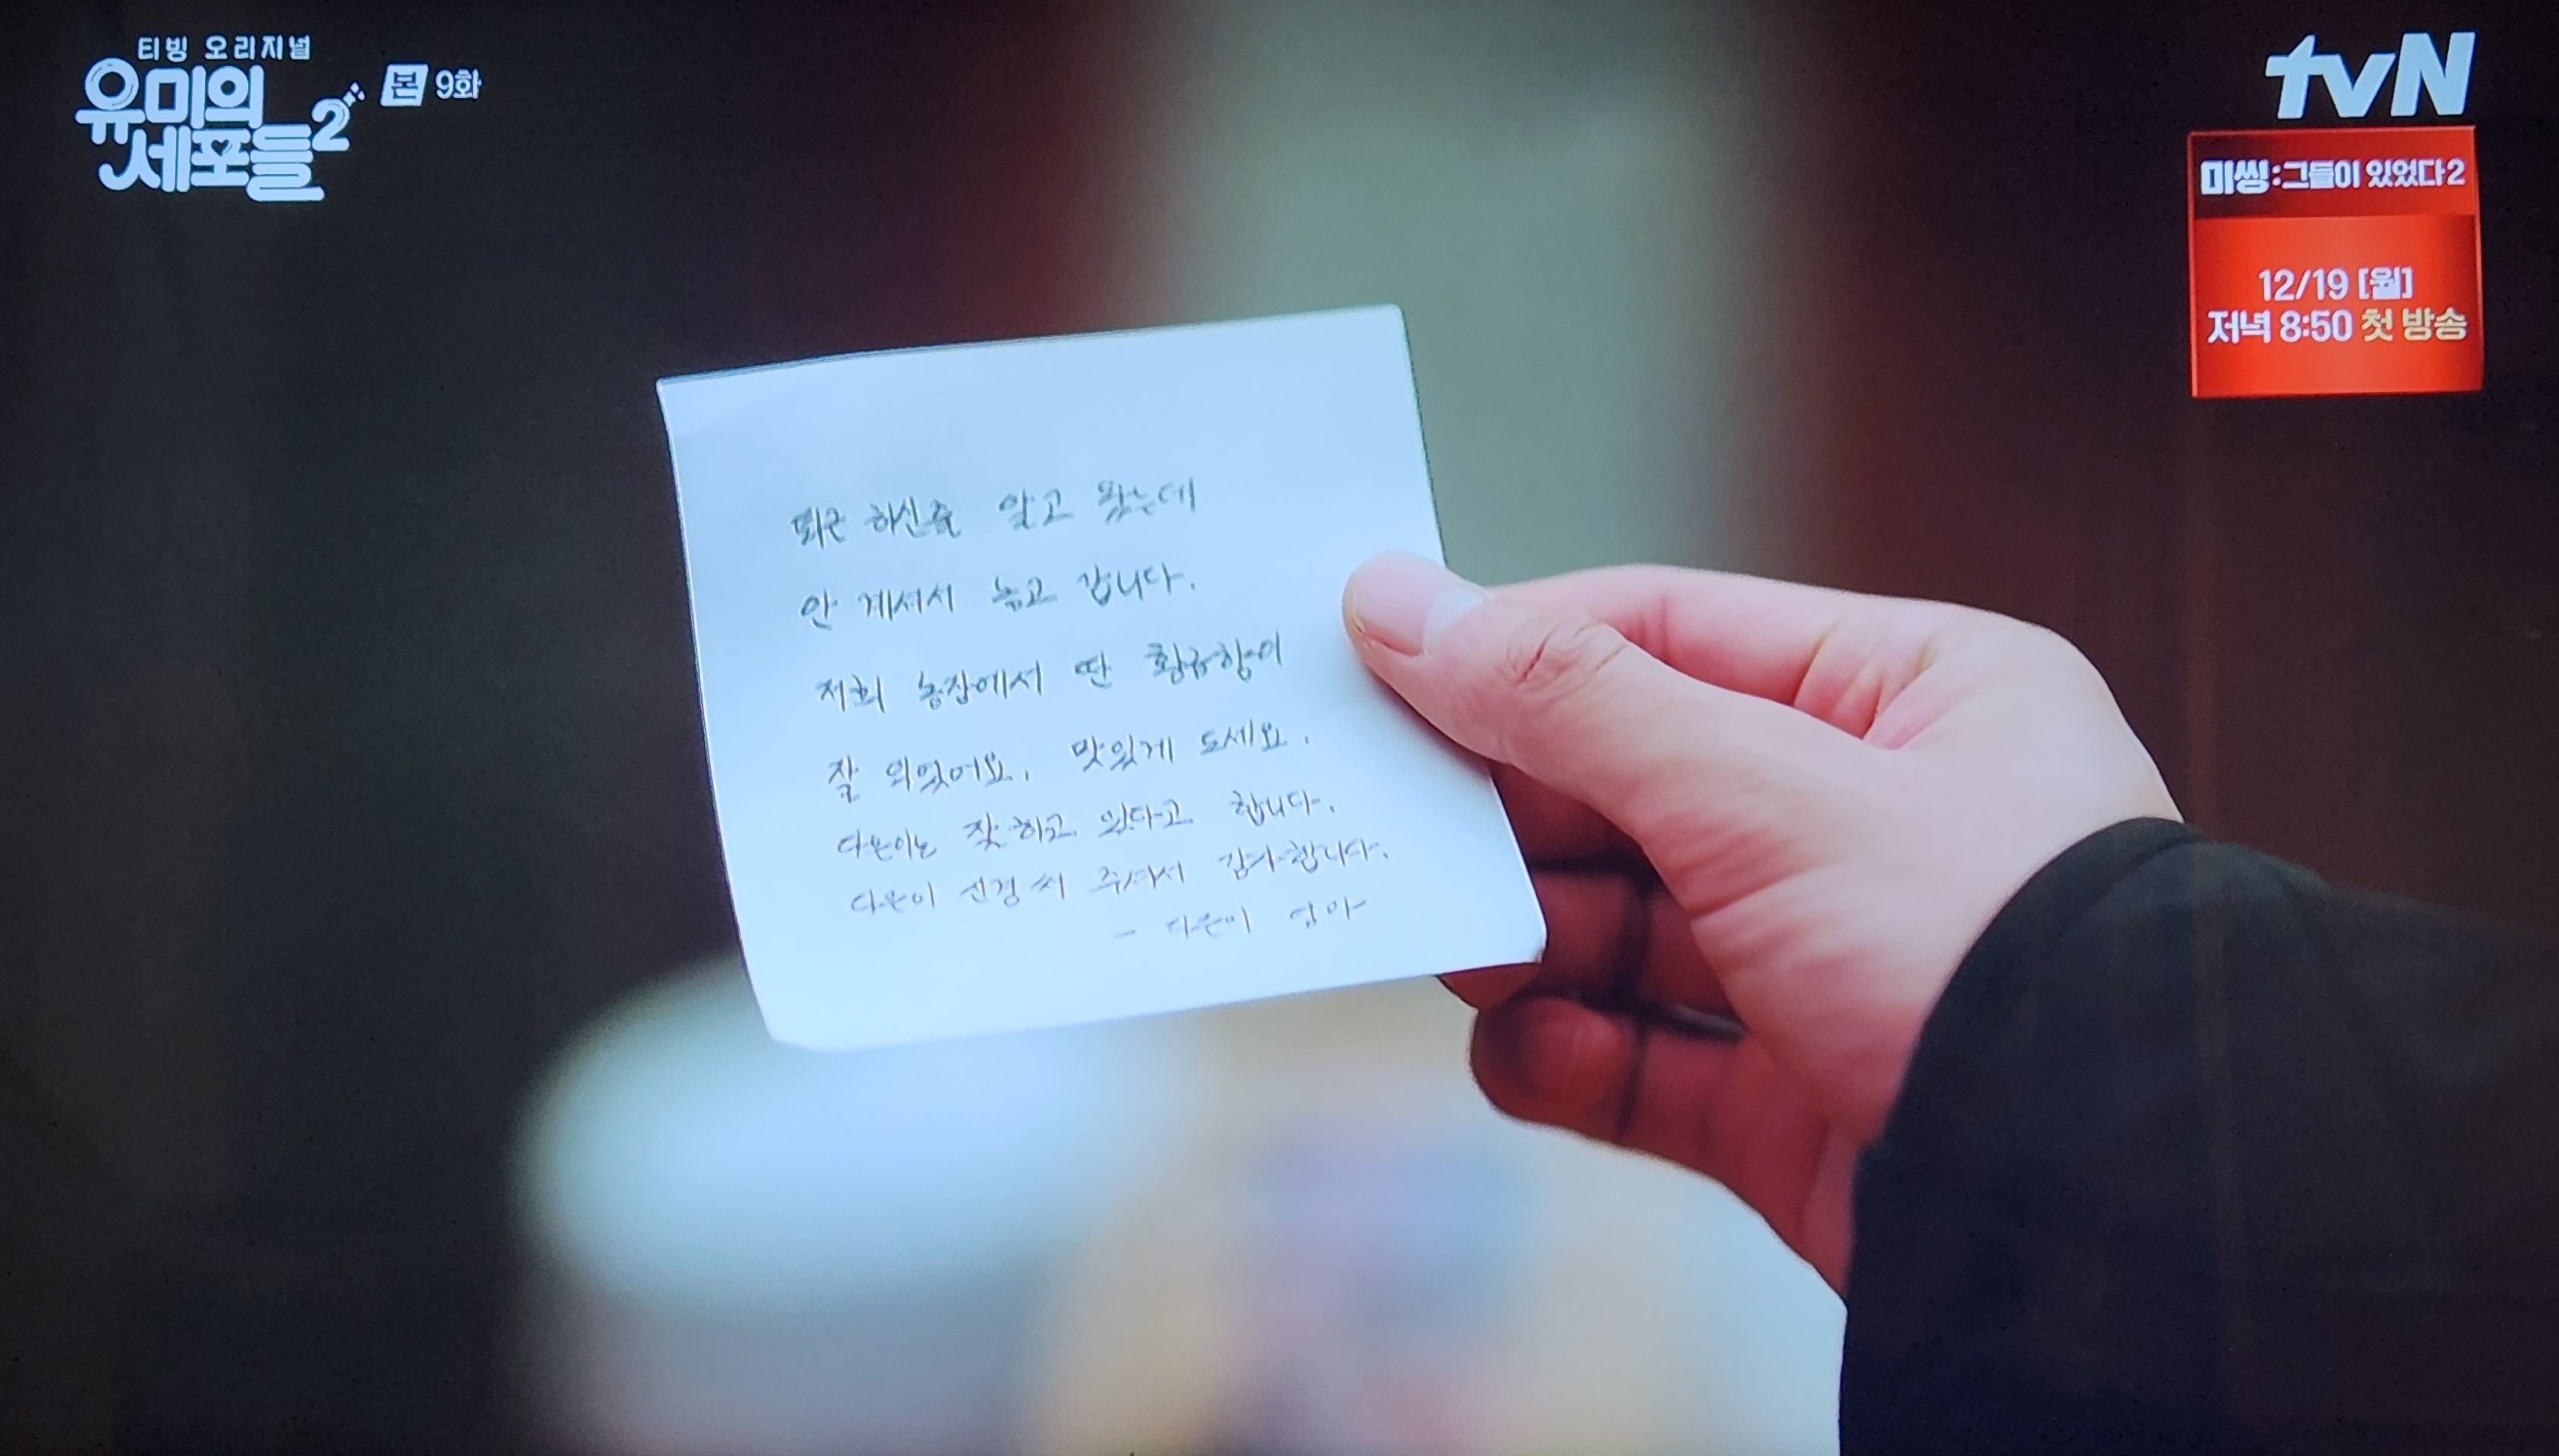 티빙 오리지널
유미의
세포들2
본 9화
tvN
미씽:그들이 있었다2
12/19 [월]
저녁 8:50 첫 방송
퇴근 하신줄 알고 왔는데
안 계셔서 놓고 갑니다.
저희 농장에서 딴 황금향이
잘 익었어요. 맛있게 드세요.
다은이는 잘 하고 있다고 합니다.
다은이 신경 써 주셔서 감사합니다.
- 다은이 엄마